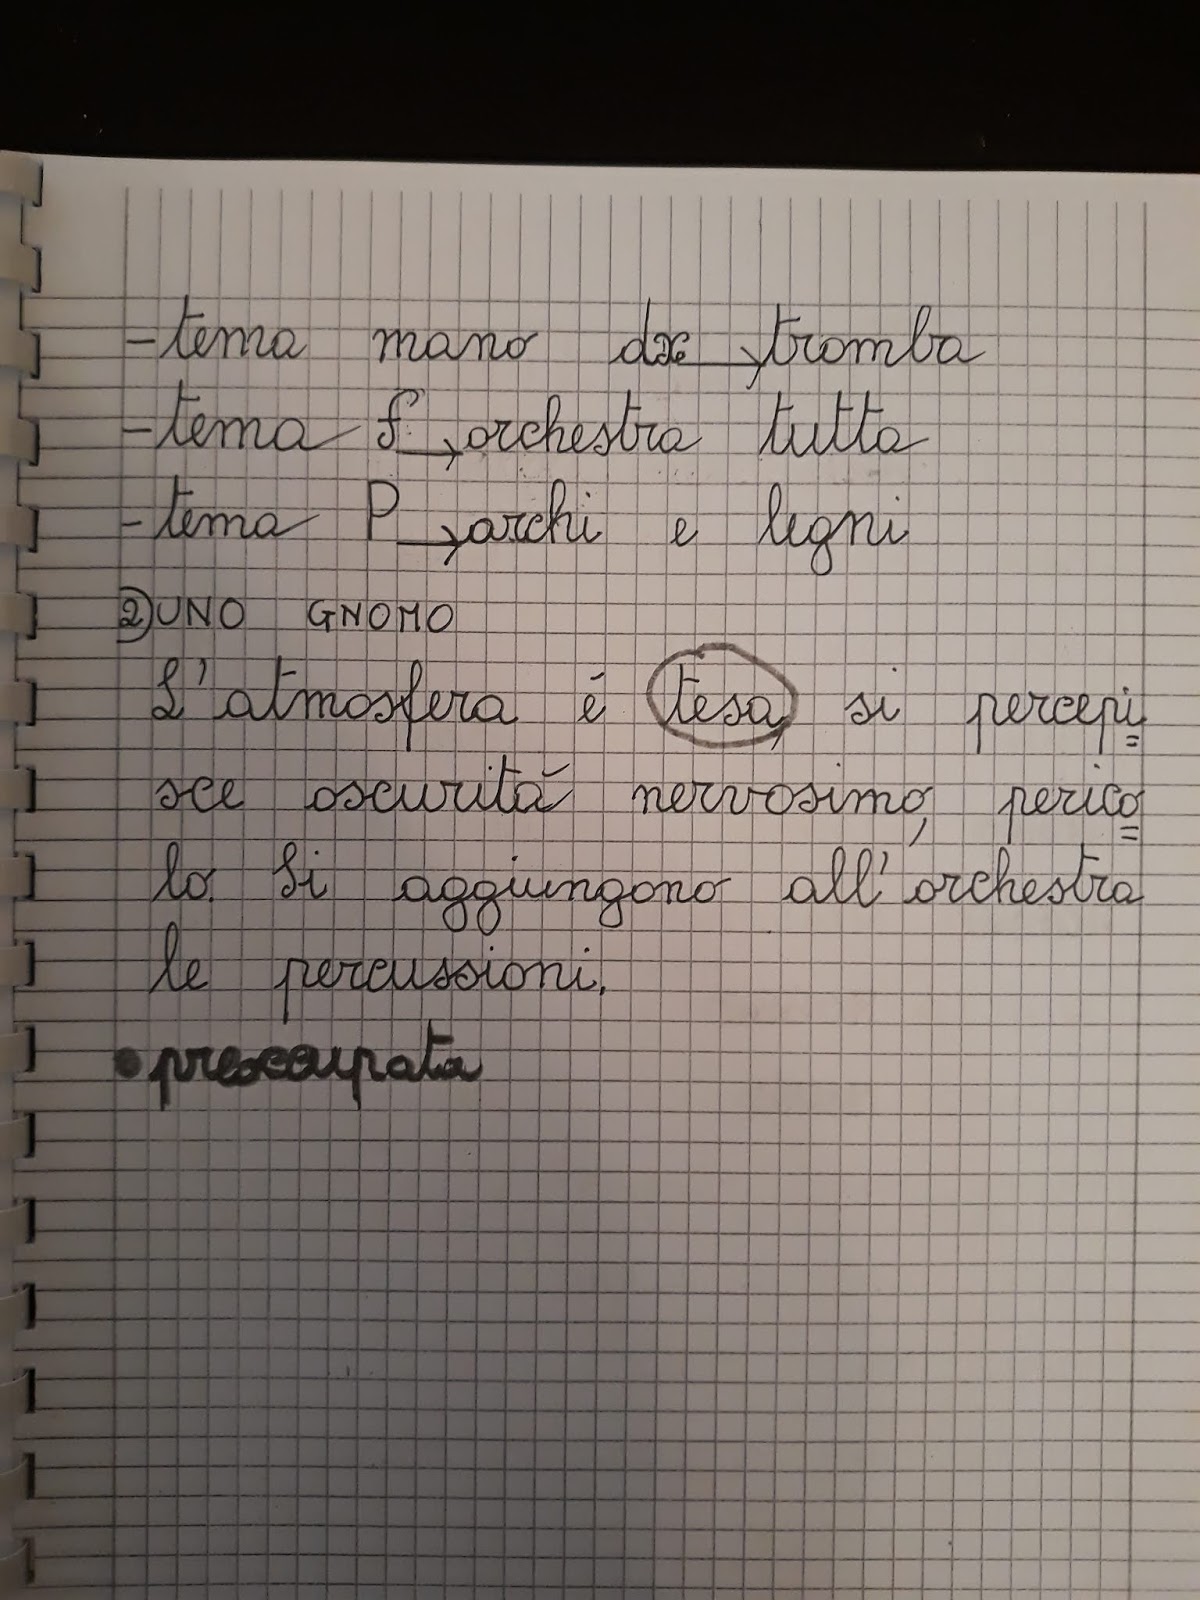 -tema mano dx → tromba
-tema f → orchestra tutta
-tema P → archi e legni
② UNO GNOMO
L'atmosfera é tesa, si percepi=
sce oscuritá nervosimo, perico=
lo. Si aggiungono all'orchestra
le percussioni.
• preocupata